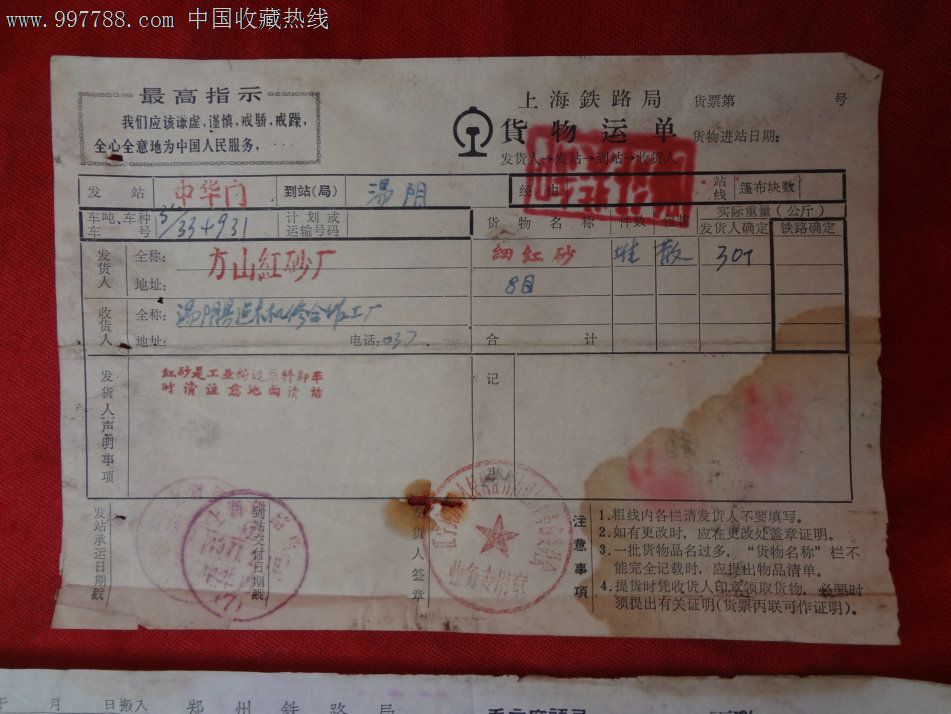 www.997788.com 中国收藏热线
最高指示
我们应该谦虚,谨慎,戒骄,戒躁,
全心全意地为中国人民服务,
上海鉄路局
货票第 号
货物运单
货物进站日期:
发货人→发站→到站→收货人
发站 中华门 到站(局) 湯阴 经由 站线 篷布块数
车吨、车种车号 计划或运输号码 货物名称 件数 包装 实际重量(公斤)
发货人确定 铁路确定
发货人 全称: 方山紅砂厂 細紅砂 堆 散 30T
地址:
收货人 全称:
地址: 电话:037 合计
发货人声明事项 记事
紅砂是工业铸造原料卸车
时请注意地面清洁
发站承运日期戳 到站交付日期戳 发货人签章 注意事项
业务专用章
1.粗线内各栏请发货人不要填写。
2.如有更改时,应在更改处盖章证明。
3.一批货物品名过多,“货物名称”栏不
能完全记载时,应提出物品清单。
4.提货时凭收货人印章领取货物,必要时
须提出有关证明(货票丙联可作证明)。
月 日搬入 郑州铁路局